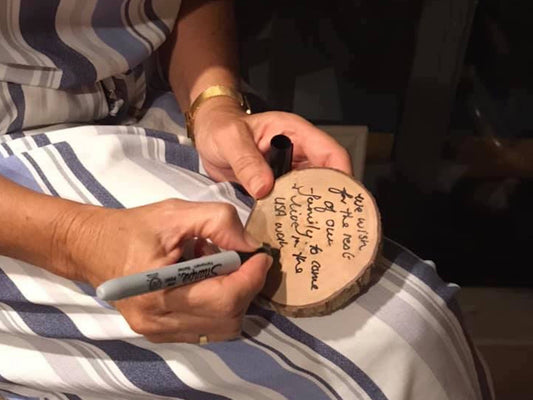 we wish
for the rest
of our
family to come
+ live in the
USA with
Sharpie